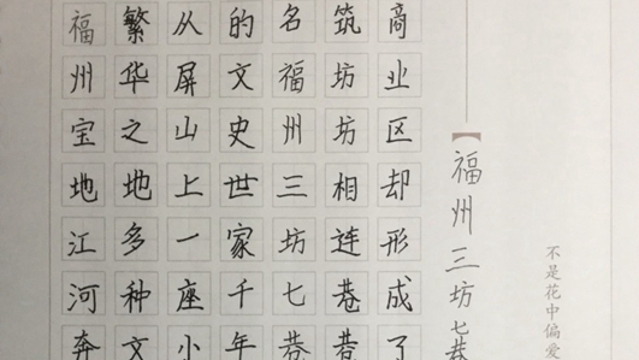 福州宝地江河奔
繁华之地多种文
从屏山上一座小
的文史世家千年
名福州三坊七巷
筑坊坊相连巷巷
商业区却形成了
【福州三坊七巷
不是花中偏爱